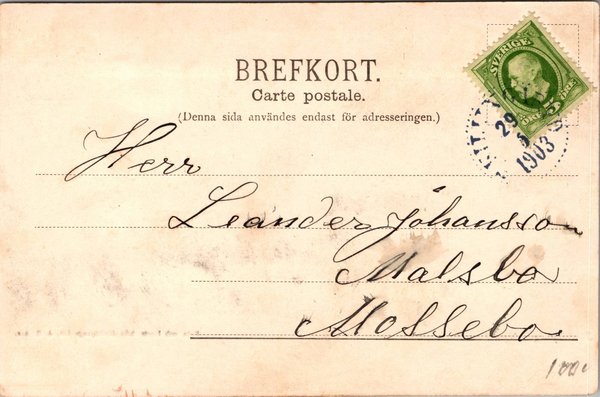 BREFKORT.
Carte postale.
(Denna sida användes endast för adresseringen.)
SVERIGE
5
29
5
1903
Herr
Leander Johansson
Malsbo
Mossebo